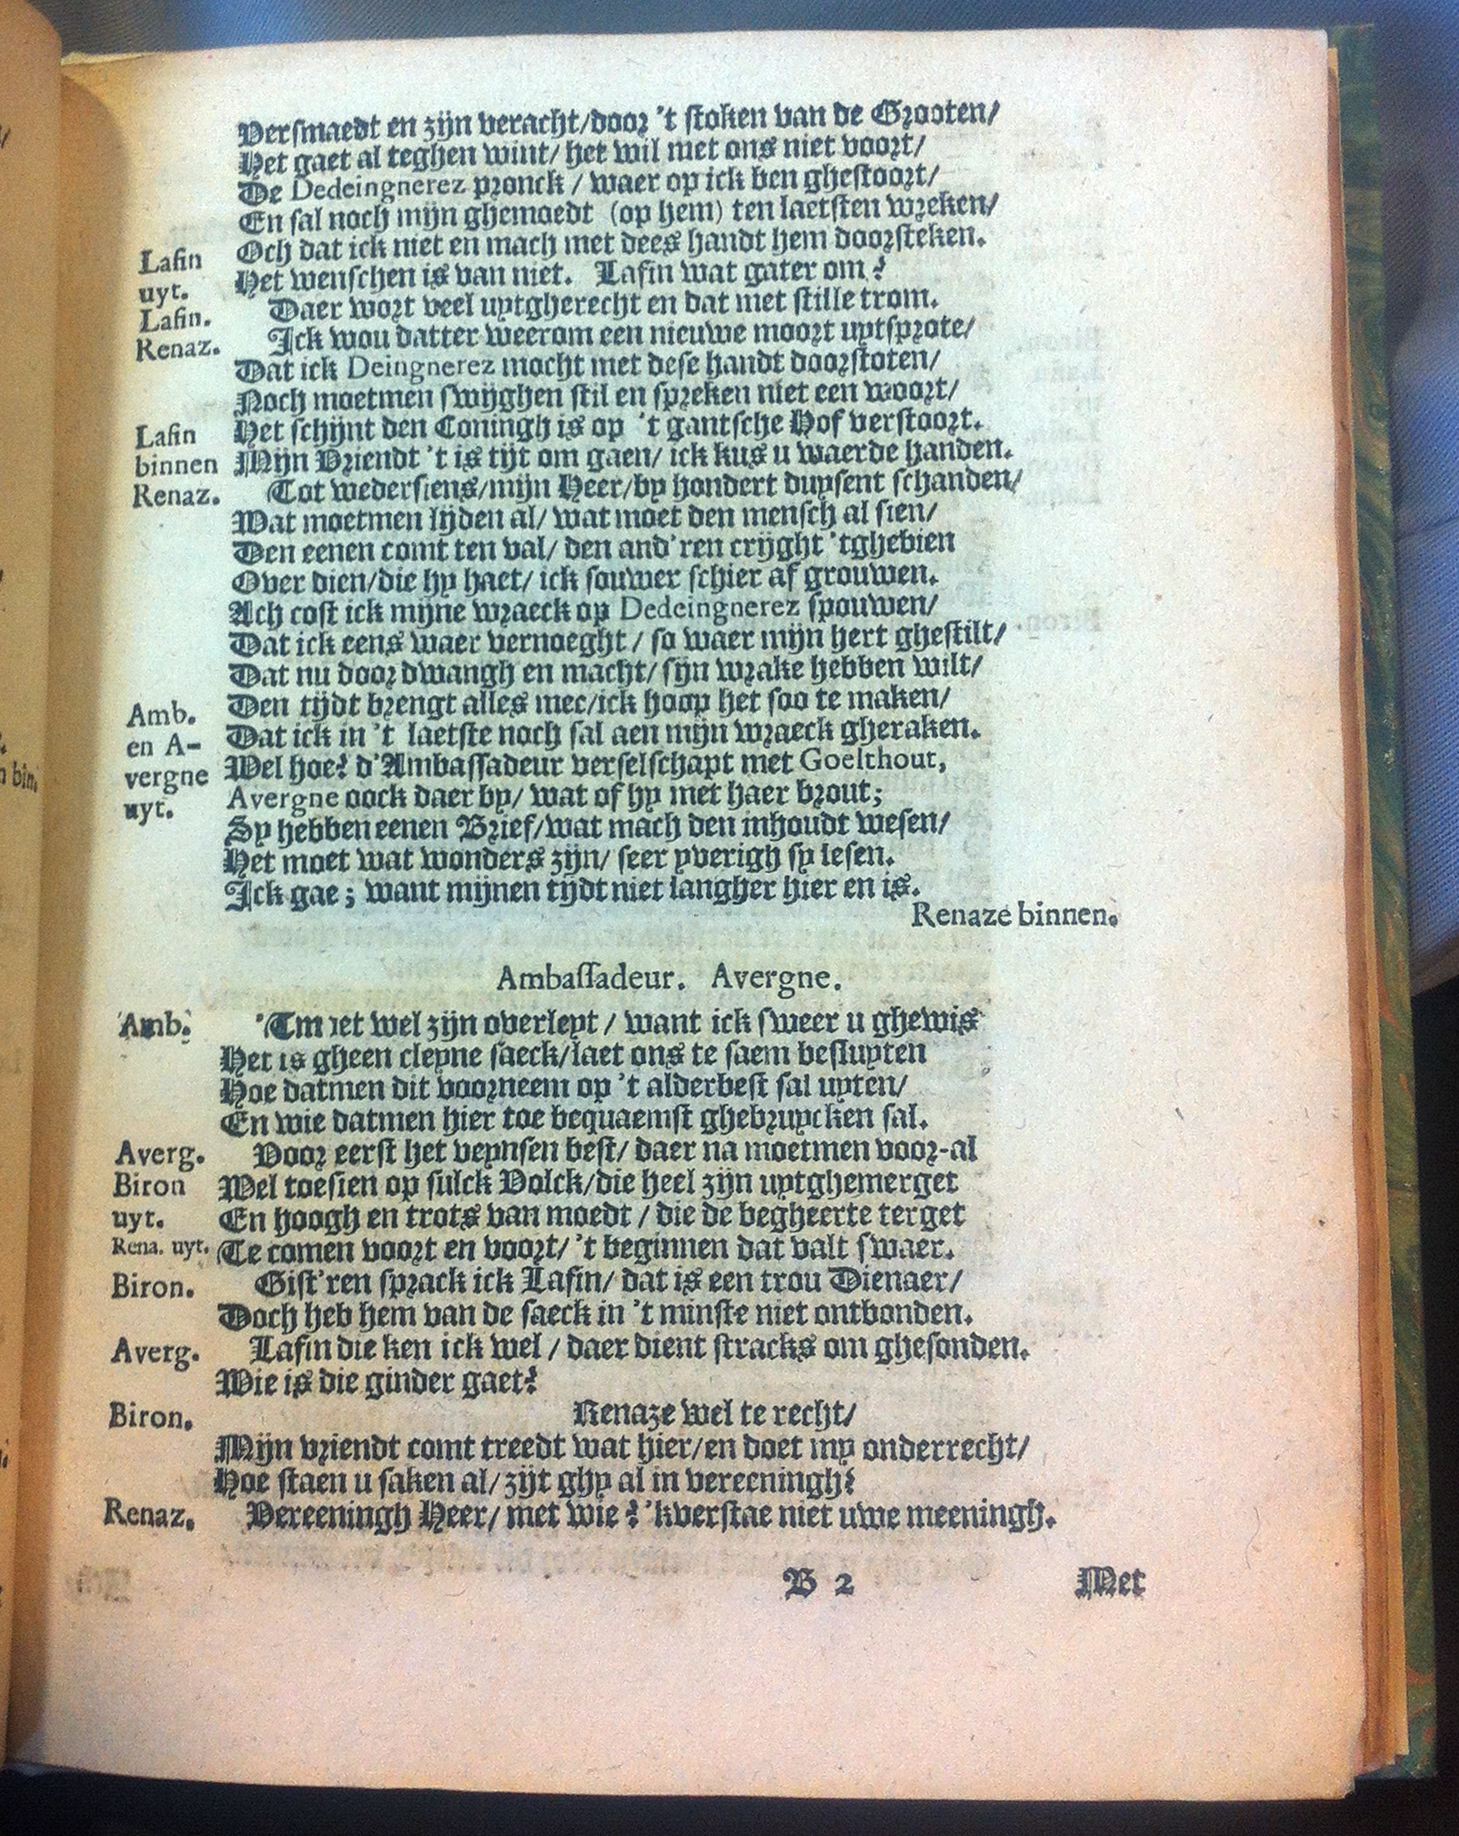 Versmaedt en zijn veracht/door 't stoken van de Grooten/
Het gaet al teghen wint/ het wil met ons niet voort/
De Dedeingnerez pronck / waer op ick ben ghestoort/
En sal noch mijn ghemoedt (op hem) ten laetsten wreken/
Och dat ick niet en mach met dees handt hem doorsteken.
Lafin uyt. Het wenschen is van niet. Lafin wat gater om?
Lafin. Daer wort veel uytgherecht en dat met stille trom.
Renaz. Ick wou datter weerom een nieuwe moort uytsprote/
Dat ick Deingnerez mocht met dese handt doorstoten/
Noch moetmen swijghen stil en spreken niet een woort/
Het schijnt den Coningh is op 't gantsche Hof verstoort.
Lafin binnen Mijn Vriendt 't is tijt om gaen/ ick kus u waerde handen.
Renaz. Tot wedersiens/mijn Heer/by hondert duysent schanden/
Wat moetmen lijden al/ wat moet den mensch al sien/
Den eenen comt ten val/ den and'ren crijght 'tghebien
Over dien/die hy haet/ ick souwer schier af grouwen.
Ach cost ick mijne wraeck op Dedeingnerez spouwen/
Dat ick eens waer vernoeght / so waer mijn hert ghestilt/
Dat nu door dwangh en macht/ sijn wrake hebben wilt/
Den tijdt brengt alles mee/ick hoop het soo te maken/
Amb. en A- vergne uyt. Dat ick in 't laetste noch sal aen mijn wraeck gheraken.
Wel hoe? d'Ambassadeur verselschapt met Goelthout,
Avergne oock daer by/ wat of hy met haer brout;
Sy hebben eenen Brief/wat mach den inhoudt wesen/
Het moet wat wonders zijn/ seer yverigh sy lesen.
Ick gae; want mijnen tijdt niet langher hier en is.
Renaze binnen.
Ambassadeur. Avergne.
Amb. 'Tmoet wel zijn overleyt / want ick sweer u ghewis
Het is gheen cleyne saeck/laet ons te saem besluyten
Hoe datmen dit voorneem op 't alderbest sal uyten/
En wie datmen hier toe bequaemst ghebruycken sal.
Averg. Voor eerst het veynsen best/ daer na moetmen voor-al
Biron Wel toesien op sulck Volck/die heel zijn uytghemerget
uyt. En hoogh en trots van moedt / die de begheerte terget
Rena. uyt. Te comen voort en voort/ 't beginnen dat valt swaer.
Biron. Gist'ren sprack ick Lafin/ dat is een trou Dienaer/
Doch heb hem van de saeck in 't minste niet ontbonden.
Averg. Lafin die ken ick wel / daer dient stracks om ghesonden.
Wie is die ginder gaet?
Biron. Renaze wel te recht/
Mijn vriendt comt treedt wat hier/en doet my onderrecht/
Hoe staen u saken al/ zijt ghy al in vereeningh?
Renaz. Vereeningh Heer/ met wie? 'kverstae niet uwe meeningh.
B 2 Met